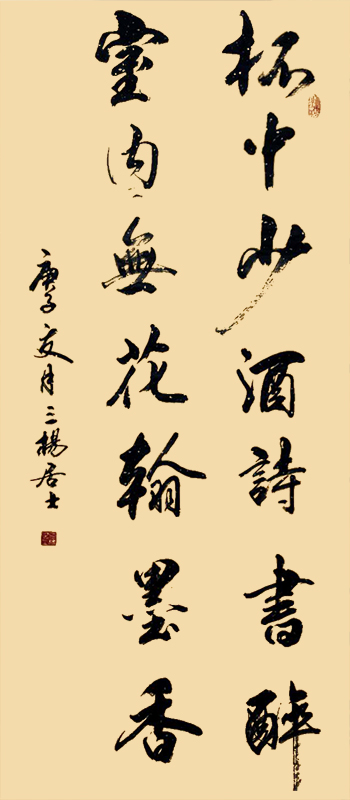 杯中少酒詩書醉
室内無花翰墨香
庚子夏月三楊居士